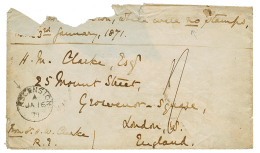 with no stamps,
3rd January, 1871.
H. M. Clarke, Esqr
25 Mount Street,
Grosvenor-Square,
London, W.
England.
ASCENSION
A
JA 16
71
From W. Clarke
R.E.